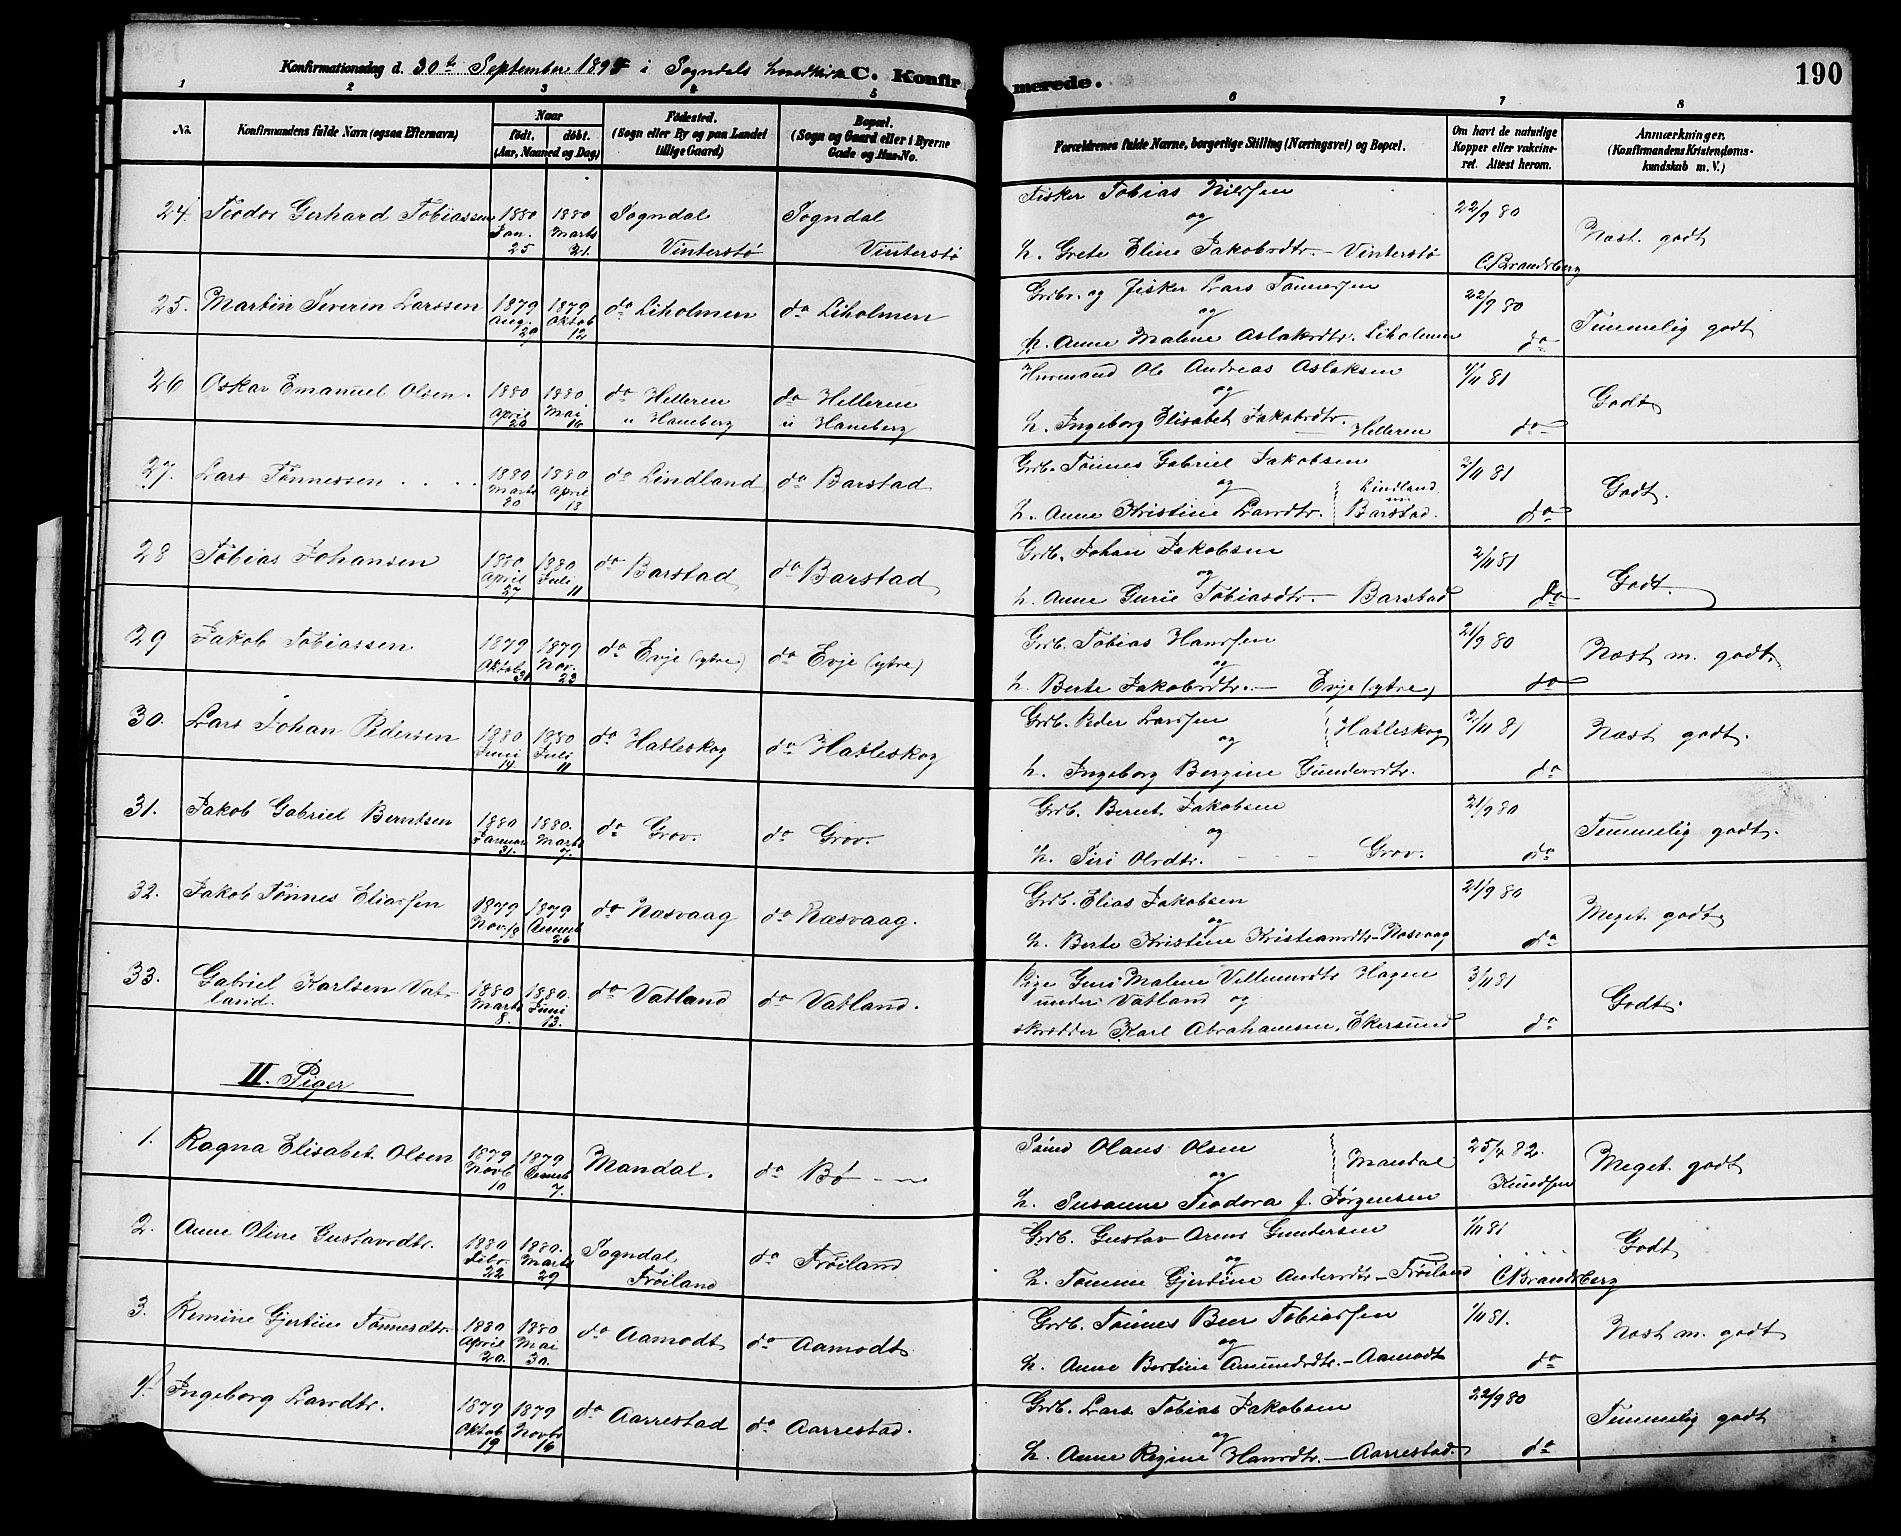 190
Konfirmationsdag d. 30te September 1894 i Sogndals C. Konfirmerede.
1 2 3 4 5 6 7 8
No. Konfirmandens fulde Navn (ogsaa Efternavn) Naar født. døbt. (Aar, Maaned og Dag) Fødested. (Sogn eller By og paa Landet tillige Gaard) Bopæl. (Sogn og Gaard eller i Byerne Gade og Hus-No. Forældrenes fulde Navne, borgerlige Stilling (Næringsvei) og Bopæl. Om havt de naturlige Kopper eller vakcineret. Attest herom. Anmærkninger. (Konfirmandens Kristendomskundskab m. V.)
24. Teodor Gerhard Tobiassen 1880 Jan. 25 1880 Marts 21. Sogndal Vinterstø Sogndal Vinterstø Fisker Tobias Nilssen
og
h. Grete Eline Jakobsdtr. - Vinterstø 22/9 80 C. Brandsberg Næst. godt
25. Martin Severin Larssen 1879 Aug. 29 1879 Oktob 12 do Liholmen do Liholmen Grdbr. og Fisker Lars Tønnessen
og
h. Anne Malene Aslaksdtr. Liholmen 22/9 80 do Temmelig godt
26 Oskar Emanuel Olsen. 1880 April 20 1880. Mai 16 do Helleren u Haneberg do Helleren u Haneberg Husmand Ole Andreas Aslaksen
og
h. Ingeborg Elisabet Jakobsdtr. Helleren 1/11 81 do Godt
27. Lars Tønnessen . . . . 1880 Marts 20 1880 April 18 do Lindland do Barstad Grdb. Tønnes Gabriel Jakobsen
og
h. Anne Kristine Larsdtr. Lindland nu Barstad. 2/11 81 do Godt.
28 Tobias Johansen 1880. April 27 1880 Juli 11 do Barstad do Barstad Grdb. Johan Jakobsen
og
h. Anne Gurie Tobiasdtr. - Barstad 2/11 81 do Godt.
29 Jakob Tobiassen 1879 Oktob. 31 1879 Nov. 23 do Evje (ytre) do Evje (ytre) Grdb. Tobias Hanssen
og
h. Berte Jakobsdtr. - Evje (ytre) 21/9 80 do Næst m. godt.
30. Lars Johan Pedersen 1880 Juni 14 1880 Juli 11 do Hatleskog do Hatleskog Grdb. Peder Larssen Hatleskog
og
h. Ingeborg Bergine Gundersdtr. 2/11 81 do Næst godt.
31. Jakob Gabriel Berntsen 1880 Januar 31. 1880. Marts 7. do Grov. do Grov. Grdb. Bernt Jakobsen
og
h. Siri Olsdtr. - - - Grov. 21/9 80 do Temmelig godt.
32. Jakob Tønnes Eliassen 1879 Nov. 18 1879 Decemb 26 do Næsvaag do Næsvaag. Grdb. Elias Jakobsen
og
h. Berte Kristine Kristiansdtr - Næsvaag 21/9 80 do Meget godt
33. Gabriel Karlsen Vatland. 1880 Marts 8. 1880. Juni 13. do Vatland do Vatland. Pige Guri Malene Villumsdtr Hagen
under Vatland og
skrædder Karl Abrahamsen, Ekersund 3/11 81 do Godt.
II. Piger
1. Ragna Elisabet Olsen 1879 Novb 10 1879 Decemb 7. Mandal. do Bø Olaus Olsen Mandal
og
h. Susanne Teodora f. Jørgensen 25/4 82. Knudsen Meget godt
2. Anne Oline Gustavsdtr. 1880 Febr. 22 1880. Marts 29 Sogndal Frøiland do Frøiland. Grdb. Gustav Arent Gundersen
og
h. Tomine Gjertine Andersdtr - Frøiland 1/11 81 C. Brandsberg Godt
3. Remine Gjertine Tønnesdtr. 1880 April 20. 1880 Mai 30. do Aamodt do Aamodt Grdb. Tønnes Beer Tobiassen
og
h. Anne Bertine Amundsdtr. - Aamodt 1/11 81. do Næst m. godt
4. Ingeborg Larsdtr. 1879 Oktob 19 1879 Novbr 16 do Aarrestad do Aarrestad. Grdb. Lars Tobias Jakobsen
og
h. Anne Regine Hansdtr. - Aarrestad. 22/9 80 do Temmelig godt